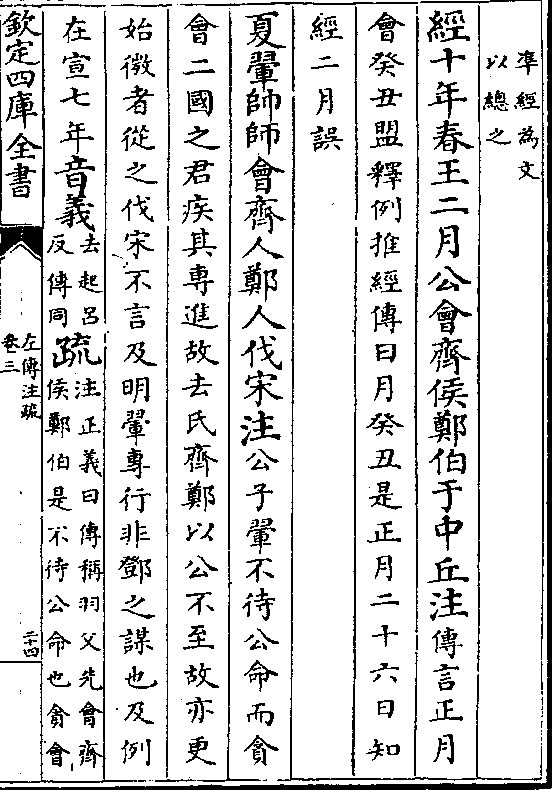 準經為文
以總之
經十年春王二月公會齊侯鄭伯于中丘注傳言正月
會癸丑盟釋例推經傳日月癸丑是正月二十六日知
經二月誤
夏翬師師會齊人鄭人伐宋注公子翬不待公命而貪
會二國之君疾其専進故去氏齊鄭以公不至故亦更
始微者從之伐宋不言及明翬専行非鄧之謀也及例
在宣七年音義去起呂
反傳同
疏注正義曰傳稱羽父先會齊
侯鄭伯是不待公命也貪會
欽定四庫全書
左傳注疏
卷三
二十四